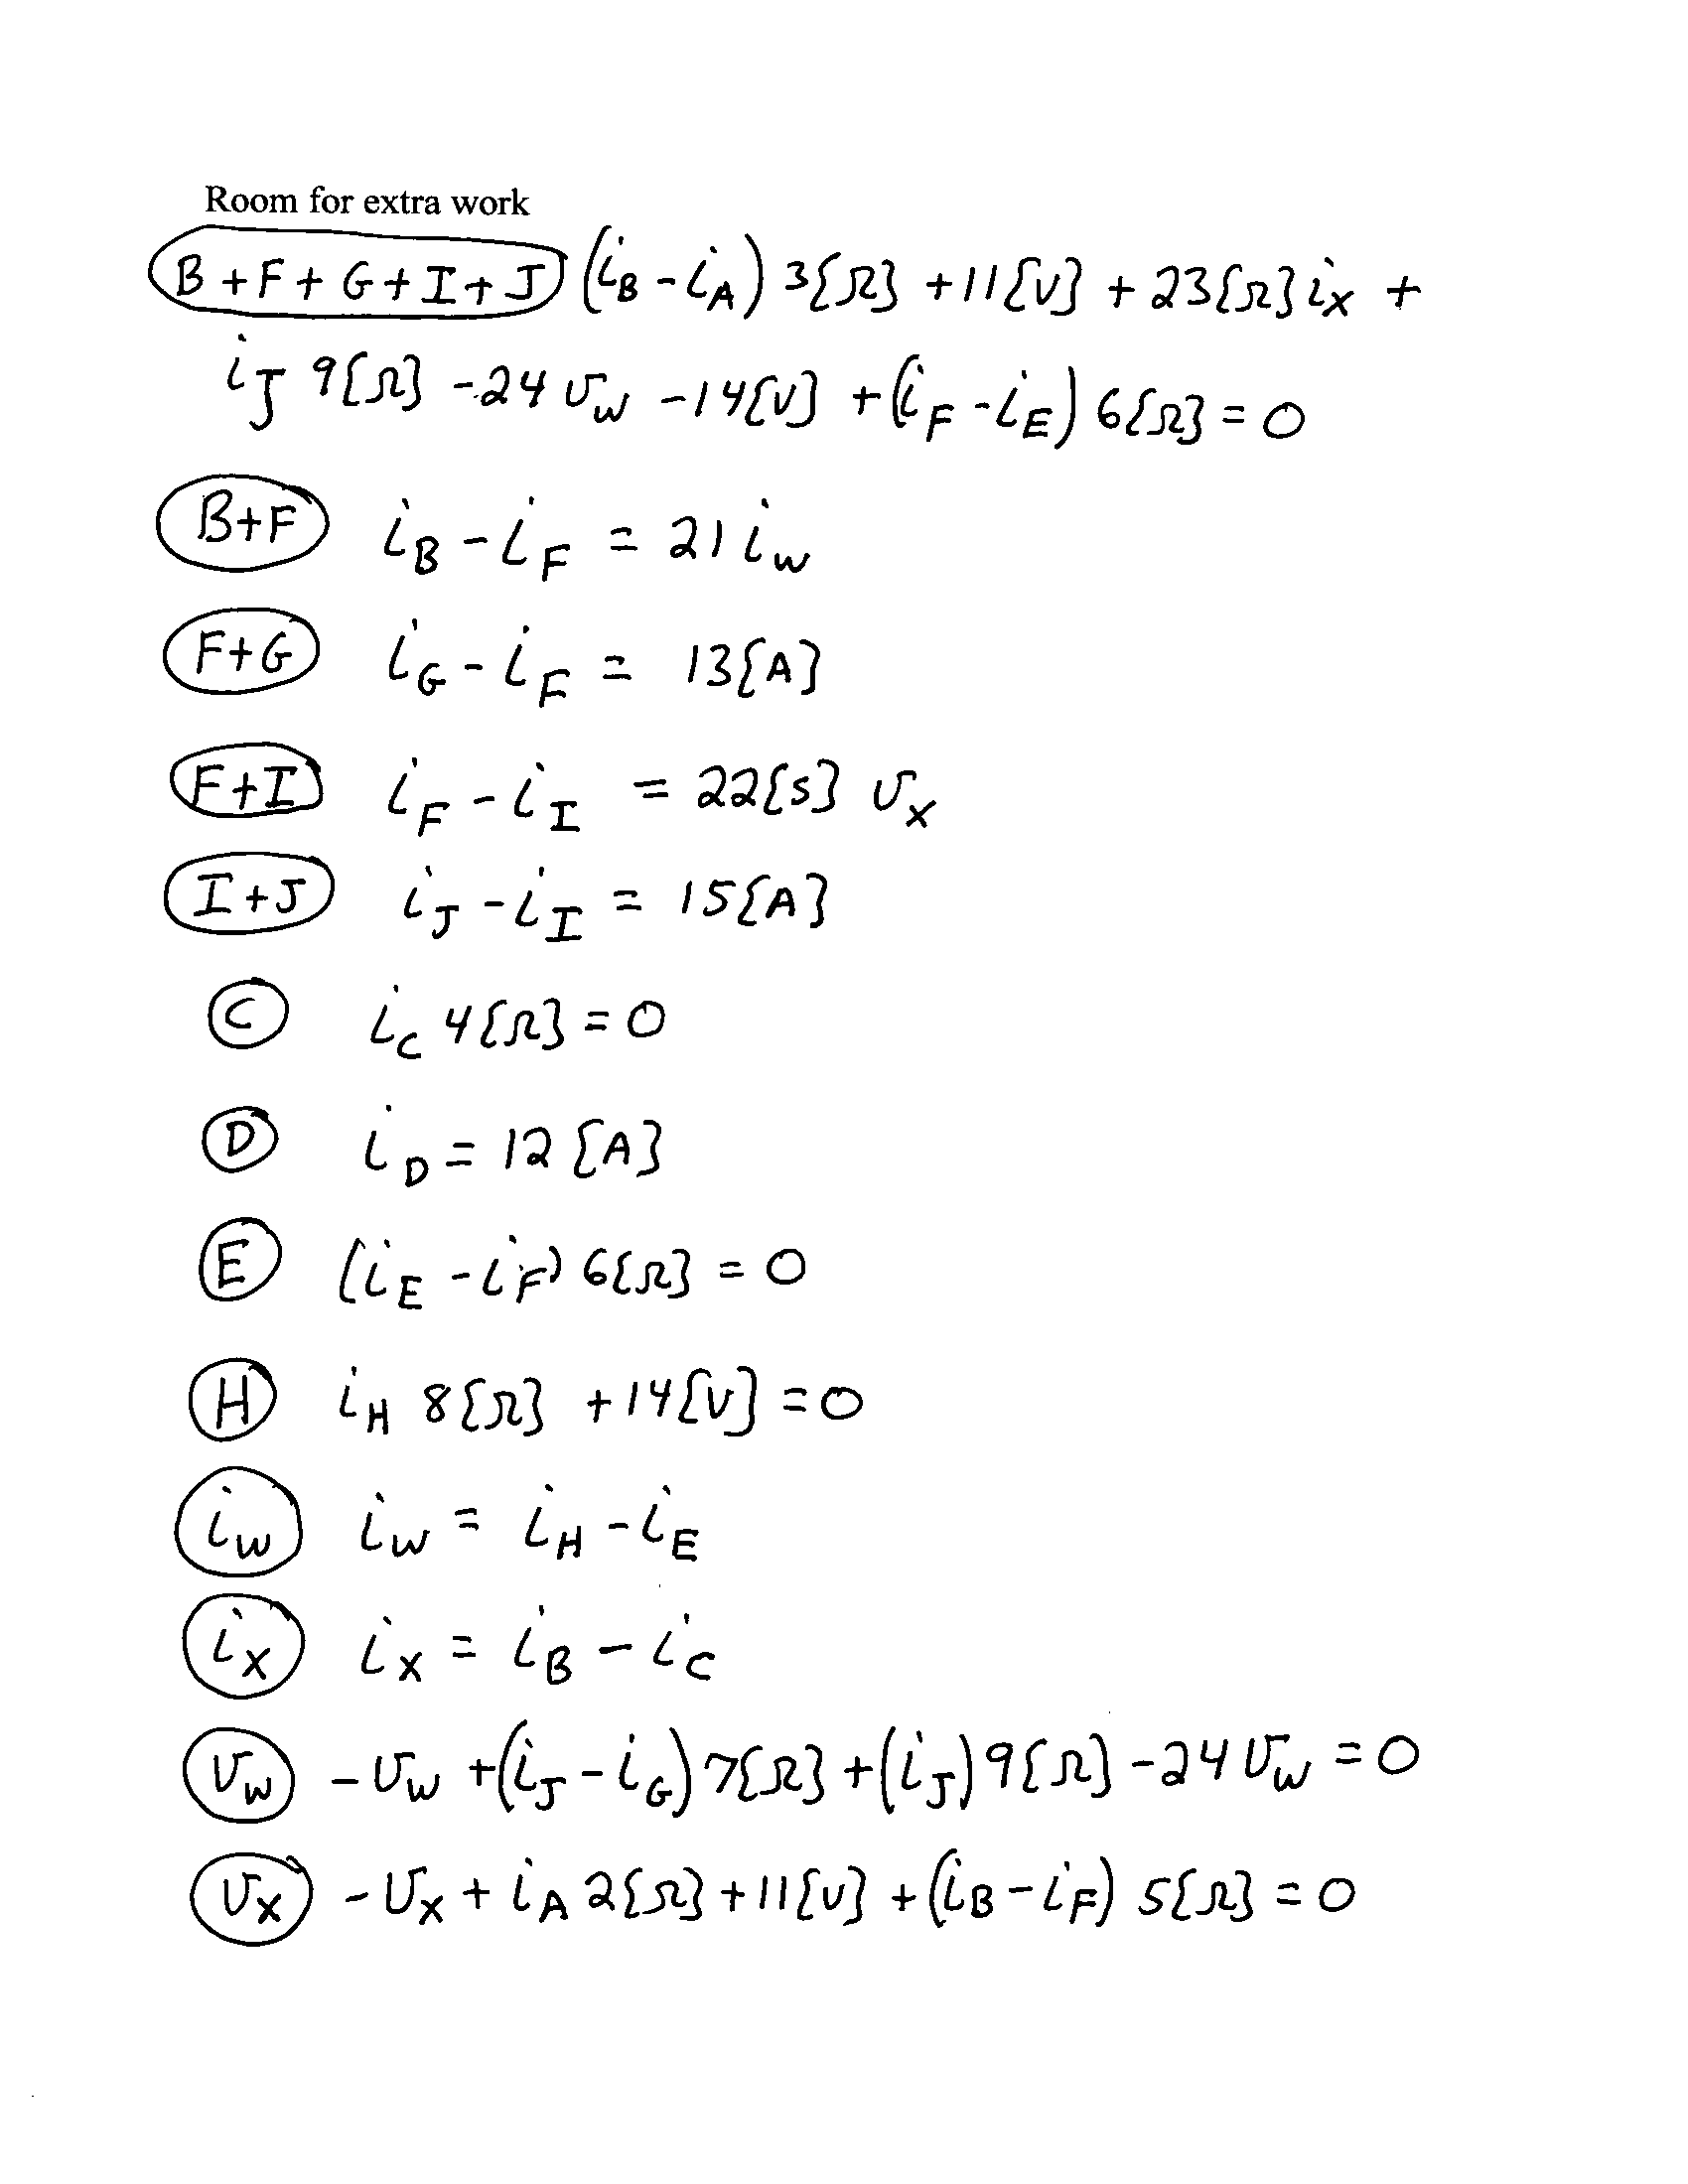 Room for extra work
B+F+G+I+J (i_B - i_A) 3[Ω] + 11[V] + 23[Ω] i_X +
i_J 9[Ω] - 24 v_W - 14[V] + (i_F - i_E) 6[Ω] = 0
B+F i_B - i_F = 21 i_W
F+G i_G - i_F = 13[A]
F+I i_F - i_I = 22[S] v_X
I+J i_J - i_I = 15[A]
C i_C 4[Ω] = 0
D i_D = 12 [A]
E (i_E - i_F) 6[Ω] = 0
H i_H 8[Ω] + 14[V] = 0
i_W i_W = i_H - i_E
i_X i_X = i_B - i_C
v_W - v_W + (i_J - i_G) 7[Ω] + (i_J) 9[Ω] - 24 v_W = 0
v_X - v_X + i_A 2[Ω] + 11[V] + (i_B - i_F) 5[Ω] = 0